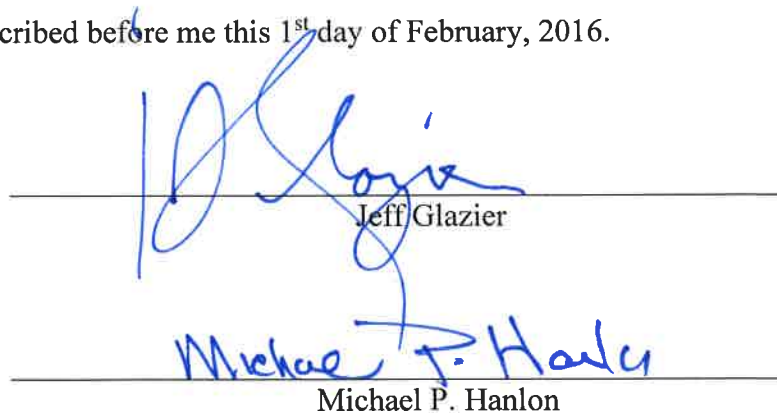 cribed before me this 1st day of February, 2016.
Jeff Glazier
Michael P. Hanlon
Michael P. Hanlon